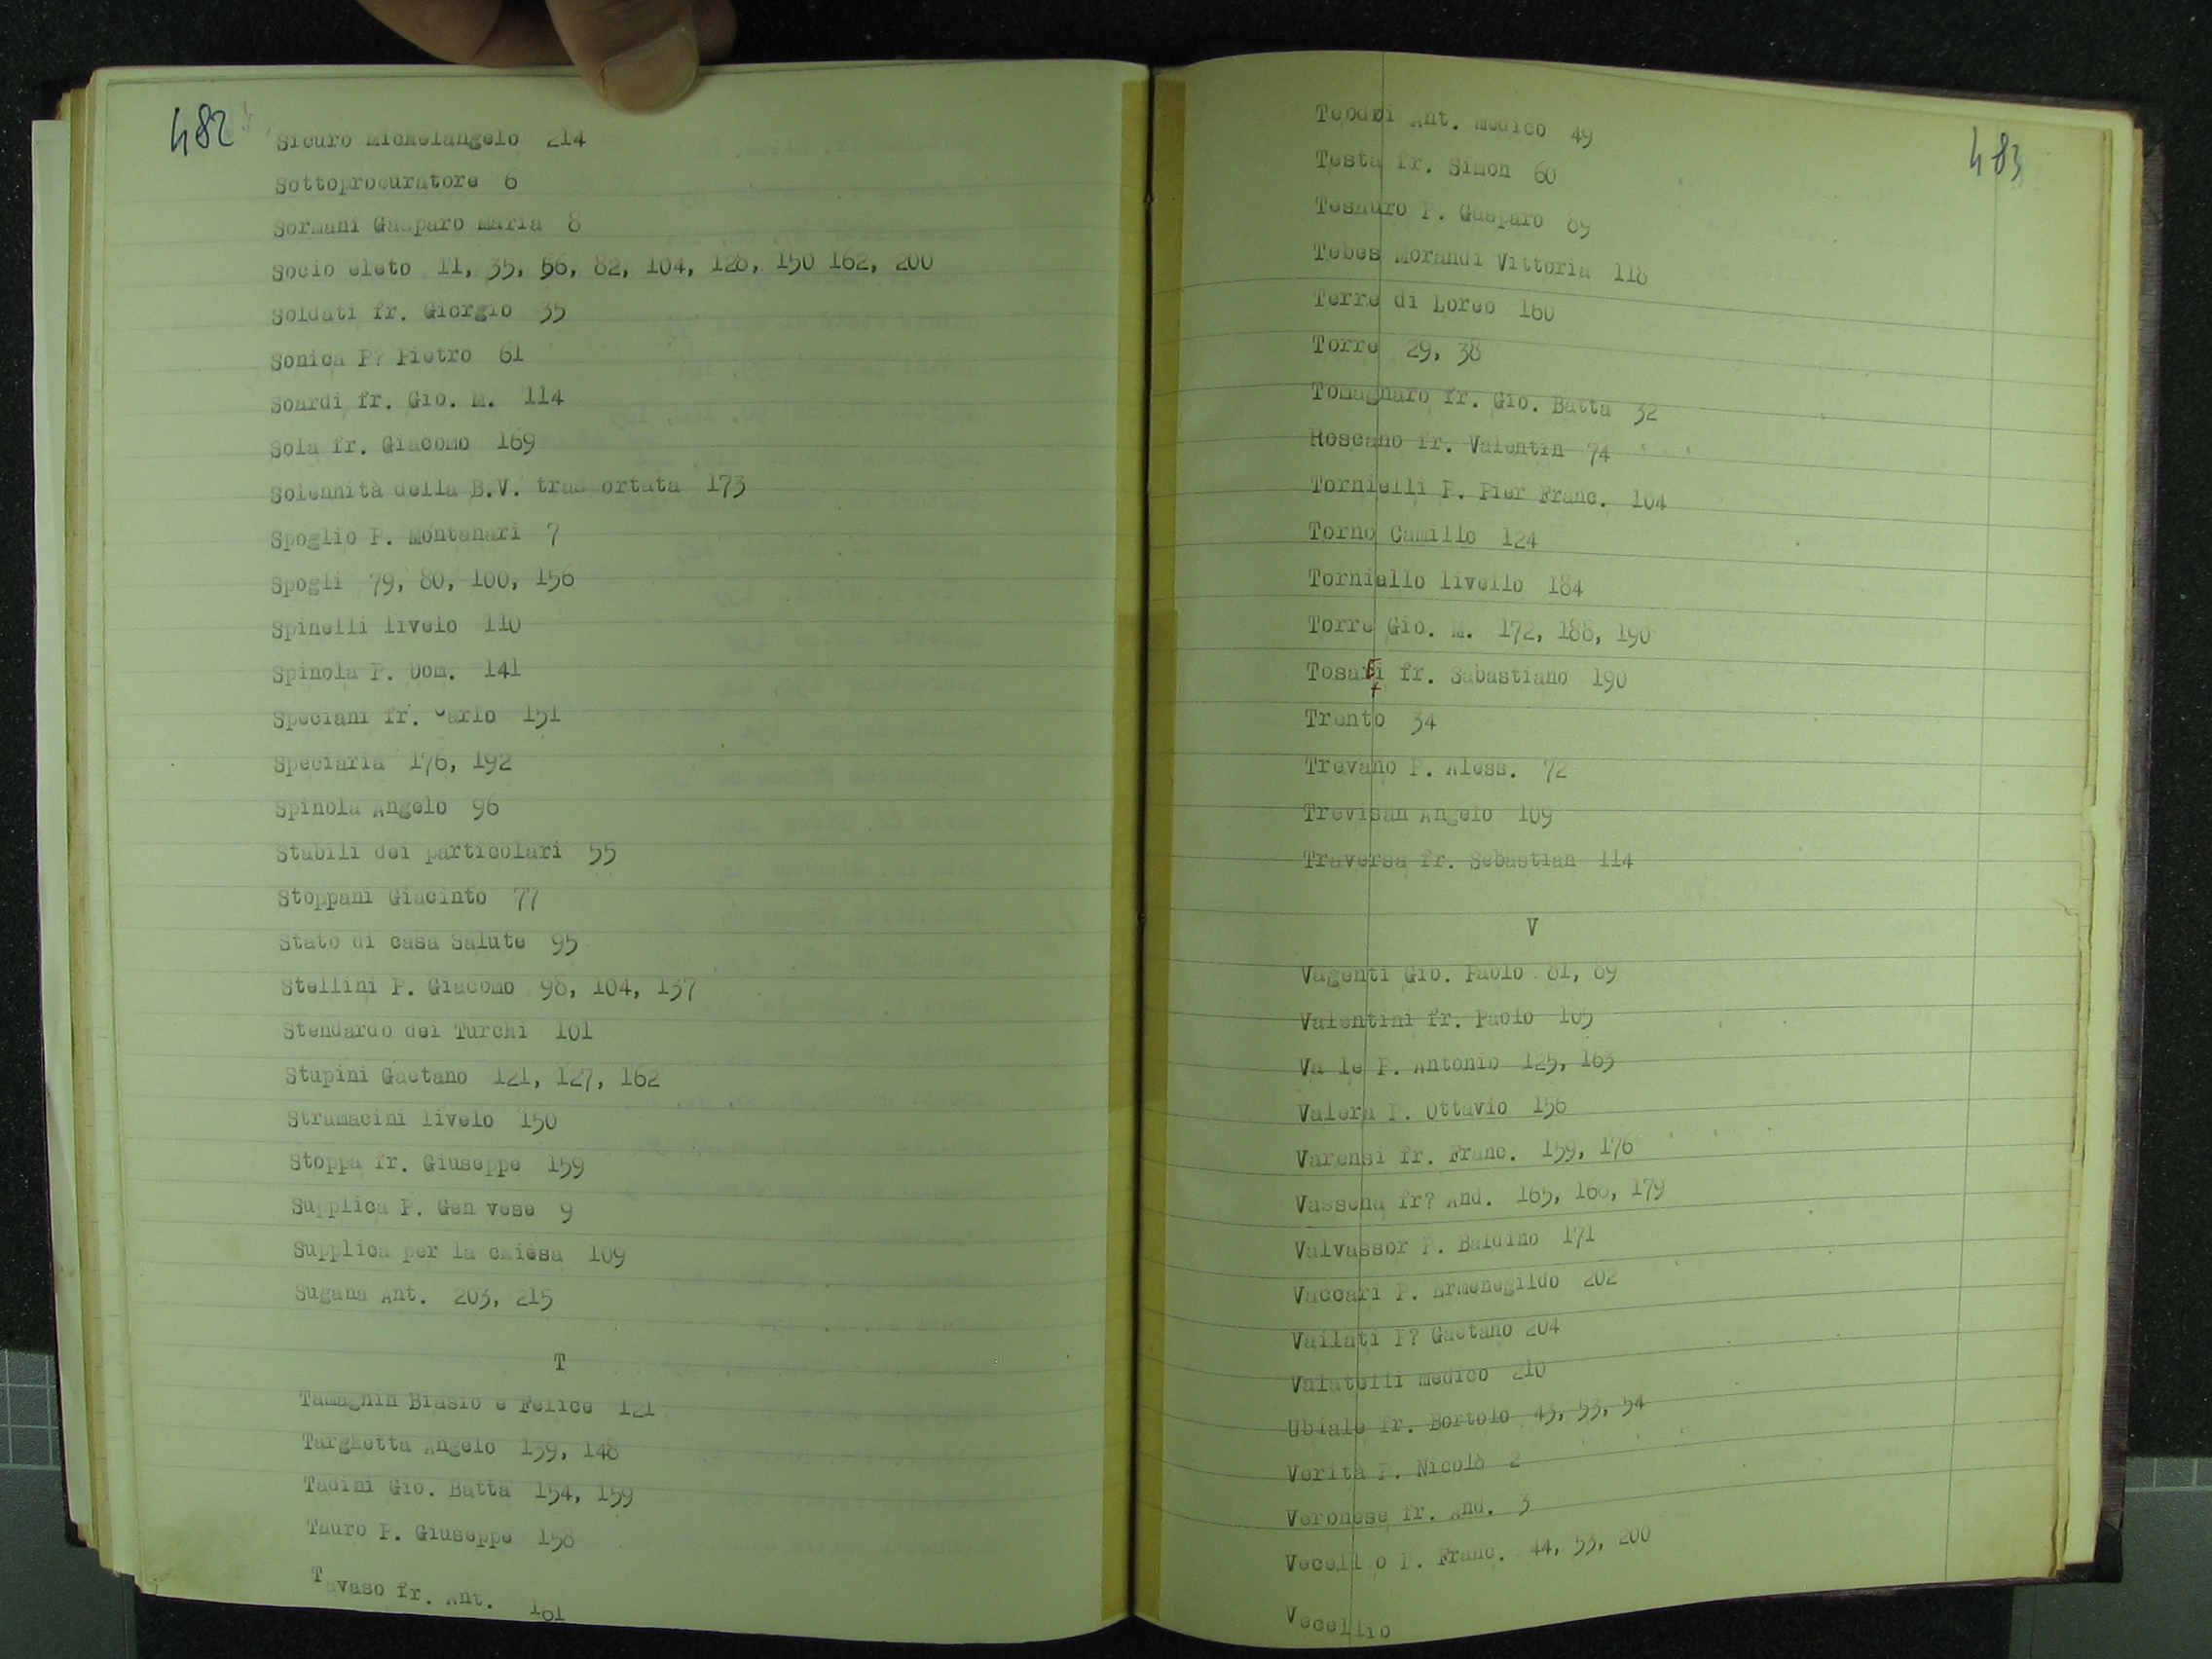 482
Sicuro Michelangelo 214
Sottoprocuratore 6
Sormani Gasparo Maria 8
Socio eleto 11, 35, 56, 82, 104, 128, 150 162, 200
Soldati fr. Giorgio 35
Sonica P? Pietro 61
Soardi fr. Gio. M. 114
Sola fr. Giacomo 169
Solennità della B.V. tras ortata 173
Spoglio P. Montanari 7
Spogli 79, 80, 100, 156
Spinelli livelo 110
Spinola P. Dom. 141
Speciani fr. Carlo 151
Speciaria 176, 192
Spinola Angelo 96
Stabili dei particolari 55
Stoppani Giacinto 77
Stato di casa Salute 95
Stellini P. Giacomo 98, 104, 137
Stendardo dei Turchi 101
Stupini Gaetano 121, 127, 162
Stramacini livelo 150
Stoppa fr. Giuseppe 159
Supplica P. Gen vese 9
Supplica per la chiesa 109
Sugana Ant. 203, 215
T
Tamagnin Biasio e Felice 121
Targhetta Angelo 139, 148
Tadini Gio. Batta 154, 159
Tauro P. Giuseppe 158
Tavaso fr. Ant. 161
483
Teodri Ant. medico 49
Testa fr. Simon 60
Tesauro P. Gasparo 89
Tebes Morandi Vittoria 118
Terre di Loreo 160
Torre 29, 38
Tomagnaro fr. Gio. Batta 32
Roscano fr. Valentin 74
Tornielli P. Pier Franc. 104
Torno Camillo 124
Torniallo livello 184
Torre Gio. M. 172, 188, 190
fr. Sabastiano 190
Trento 34
Trevano P. Aless. 72
Trevisan Angelo 109
Traversa fr. Sebastian 114
V
Vagenti Gio. Paolo 81, 89
Valentini fr. Paolo 105
Va le P. Antonio 125, 163
Valera P. Ottavio 156
Varensi fr. Franc. 159, 176
Vassena fr? And. 165, 168, 179
Valvassor P. Baldino 171
Vaccari P. Ermenegildo 202
Vailati P? Gaetano 204
Valatelli medico 210
Ubiale fr. Bortolo 43, 53, 54
Verità P. Nicolò 2
Veronese fr. And. 3
Vecell o P. Franc. 44, 53, 200
Vecellio